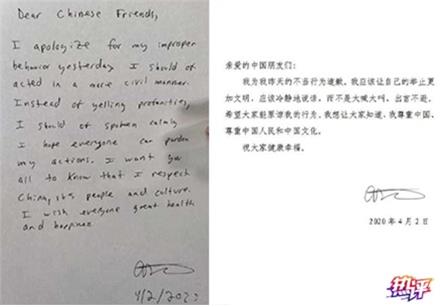 Dear Chinese Friends,
I apologize for my improper
behavior yesterday. I should of
acted in a more civil manner.
Instead of yelling profanities,
I should of spoken calmly
I hope everyone can pardon
my actions. I want you
all to know that I respect
China, its people and culture.
I wish everyone great health
and happiness.
4/2/2020
亲爱的中国朋友们：
我为我昨天的不当行为道歉。我应该让自己的举止更
加文明，应该冷静地说话，而不是大喊大叫，出言不逊。
希望大家能原谅我的行为。我想让大家知道，我尊重中国、
尊重中国人民和中国文化。
祝大家健康幸福。
2020 年 4 月 2 日
热评